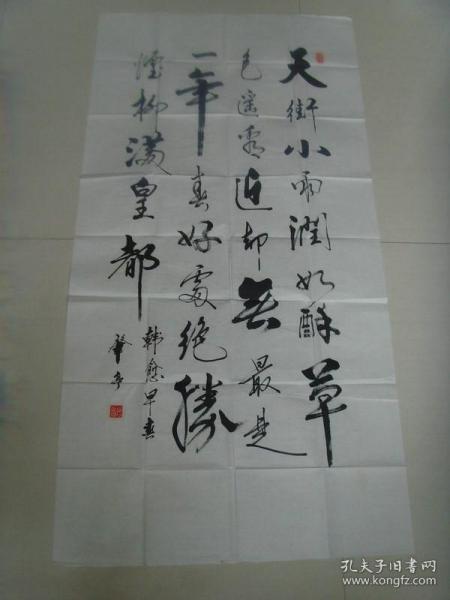 天街小雨潤如酥草
色遥看近却無最是
一年春好處绝勝
煙柳满皇都
韩愈早春
孔夫子旧书网
www.kongfz.com